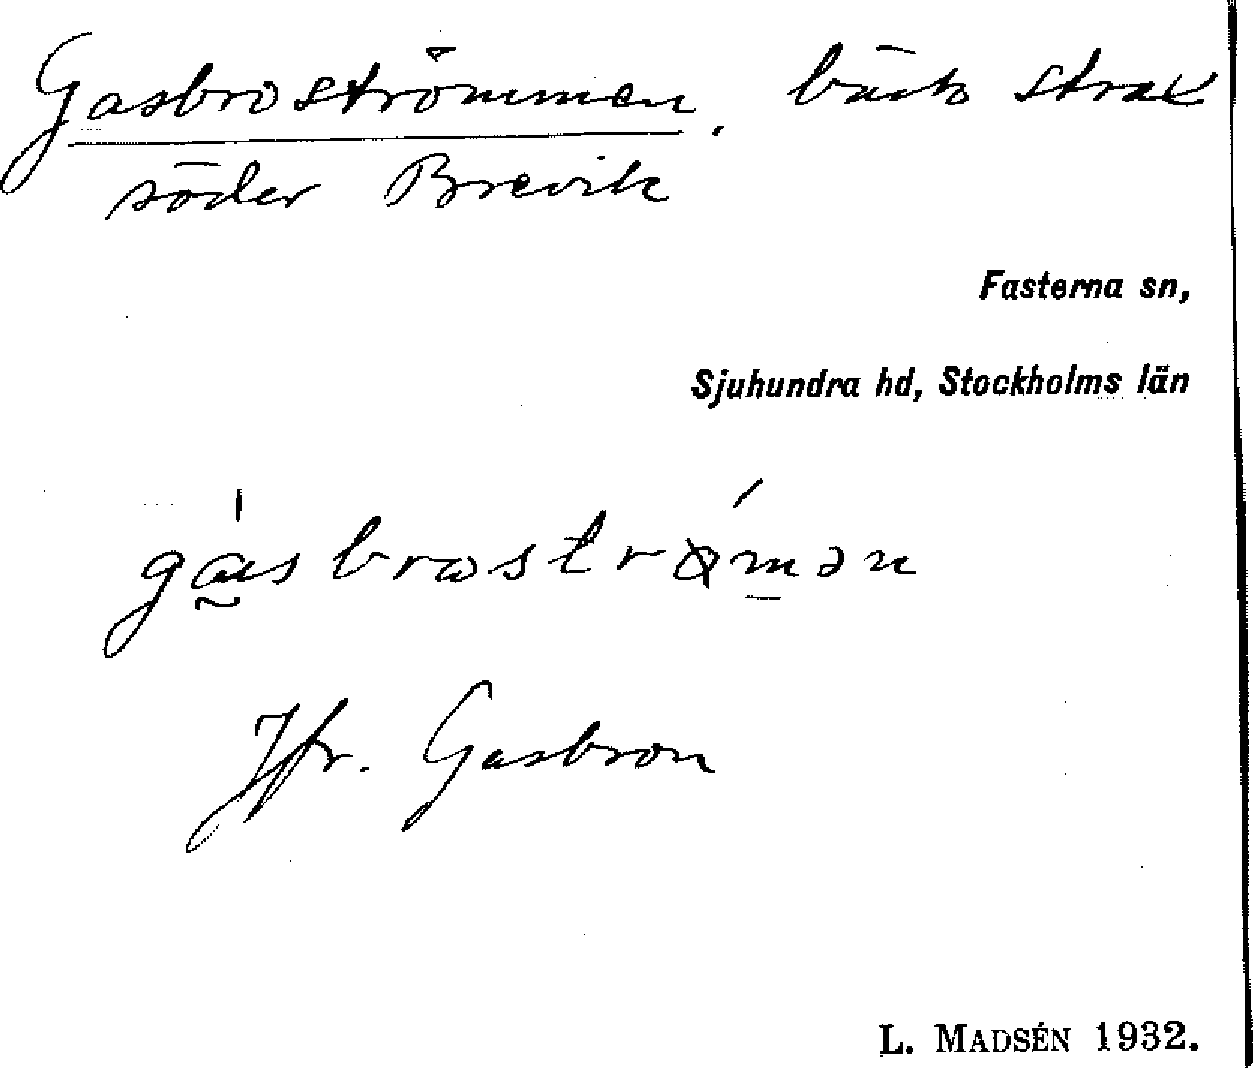 Gasbroströmmen, bäck strax
söder Brevik
Fasterna sn,
Sjuhundra hd, Stockholms län
Jfr. Gasbron
L. MADSÉN 1932.